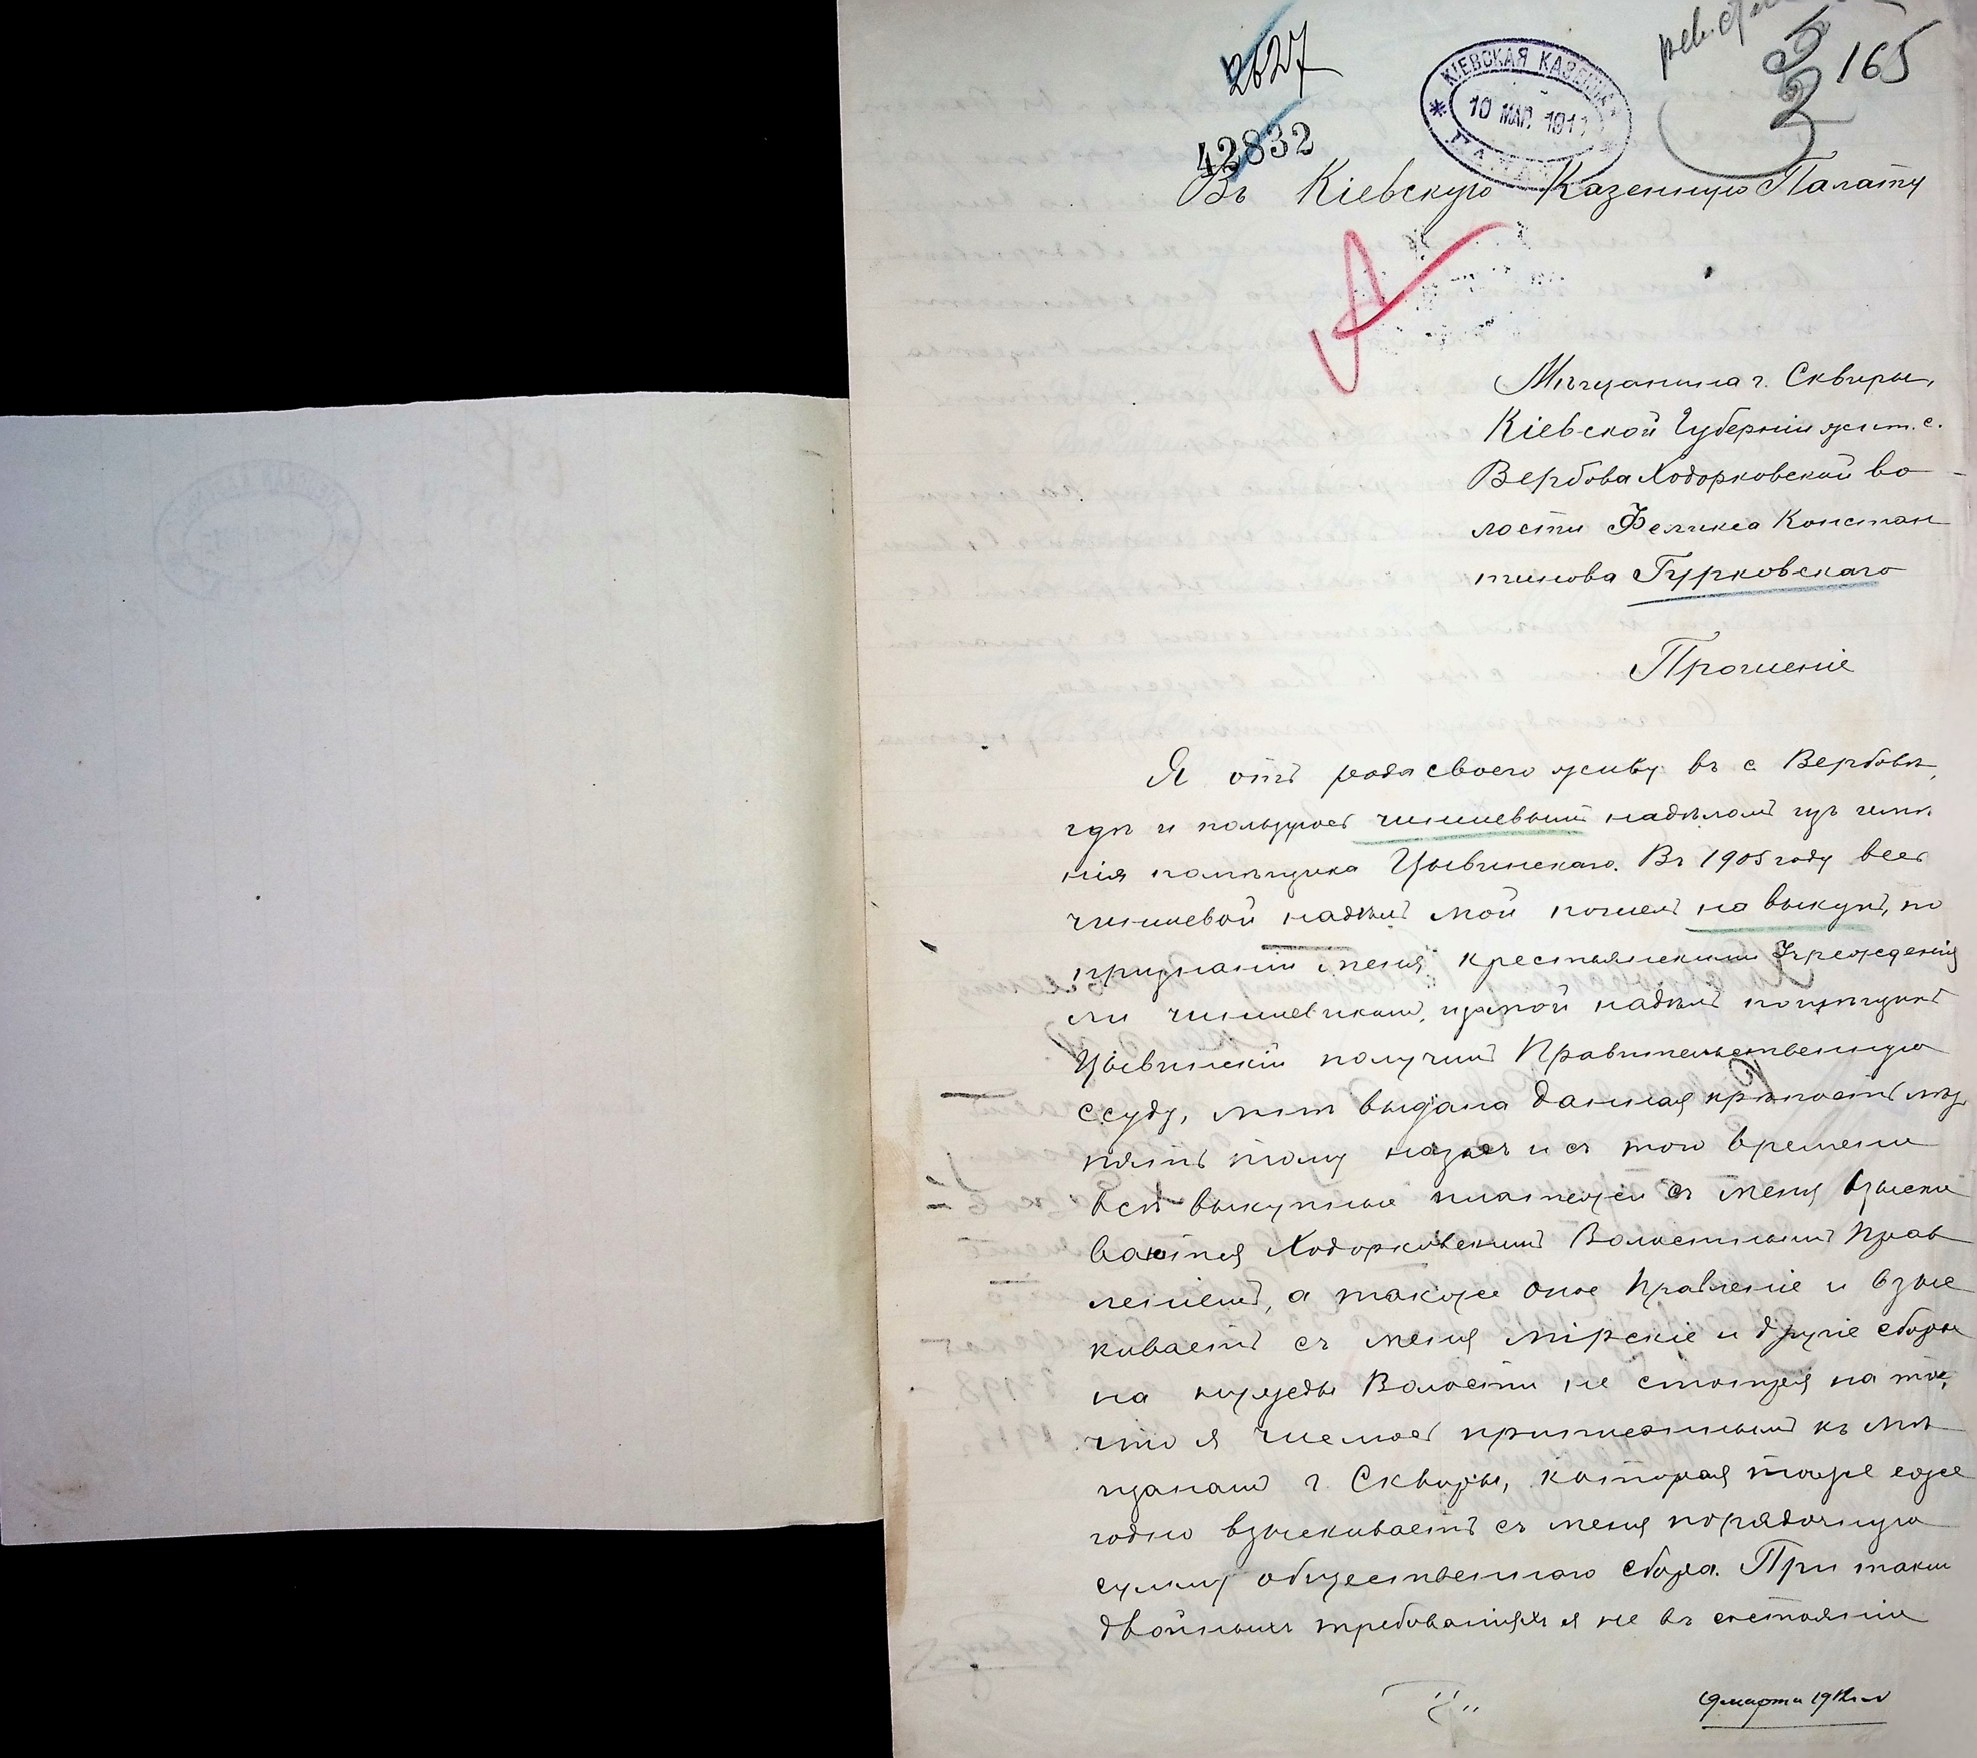 2627
165
КІЕВСКАЯ КАЗЕН
10 МАР. 191
42832
Въ Кіевскую Казенную Палату
Мѣщанина г. Сквиры,
Кіевской Губерніи жит. с.
Вербова Ходорковской во-
лости Феликса Констан
тинова Гурковскаго
Прошеніе
Я отъ рода своего живу въ с Вербовѣ,
гдѣ и пользуюсь чиншевымъ надѣломъ изъ имѣ
нія помѣщика Цывинскаго. Въ 1905 году весь
чиншевой надѣлъ мой пошелъ на выкупъ, по
признаніи меня крестьянскими Учрежденія
ми чиншевикомъ, за мой надѣлъ помѣщикъ
Цывинскій получилъ Правительственную
ссуду, мнѣ выдана данная крѣпость лѣтъ
пять тому назадъ и съ того времени
всѣ выкупные платежи съ меня взыски
ваются Ходорковскимъ Волостнымъ Прав
леніемъ, а также оное Правленіе и взыс
киваетъ съ меня мірскіе и другіе сборы
на нужды Волости не смотря на то,
что я числюсь приписаннымъ къ мѣ
щанамъ г. Сквиры, которая тоже еже
годно взыскиваетъ съ меня порядочную
сумму общественнаго сбора. При таких
двойныхъ требованіяхъ я не въ состояніи
9 марта 1912